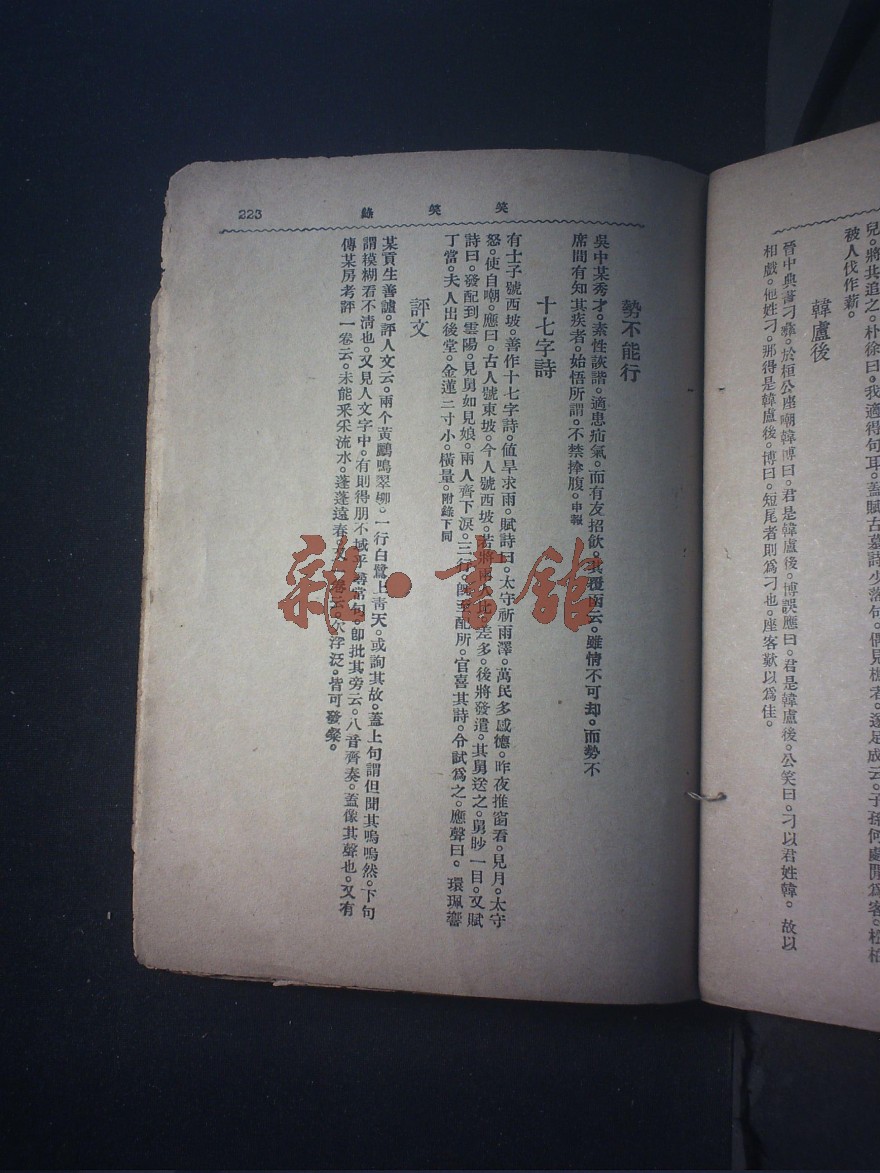 兒。將其追之。朴徐曰。我適得句耳。蓋賦古墓詩少落句。偶見樵者。遂足成云。子孫何處閒爲客。松柏
被人伐作薪。
韓盧後
晉中典書刁彝。於桓公座嘲韓博曰。君是韓盧後。博誤應曰。君是韓盧後。公笑曰。刁以君姓韓。故以
相戲。他姓刁。那得是韓盧後。博曰。短尾者則爲刁也。座客歎以爲佳。
笑笑錄
223
勢不能行
吳中某秀才。素性詼諧。適患疝氣。而有友招飲。其覆函云。雖情不可却。而勢不
席間有知其疾者。始悟所謂。不禁捧腹。申報
十七字詩
有士子號西坡。善作十七字詩。値旱求雨。賦詩曰。太守祈雨澤。萬民多感德。昨夜推窗看。見月。太守
怒。使自嘲。應曰。古人號東坡。今人號西坡。若將兩人比。差多。後將發遣。其舅送之。舅眇一目。又賦
詩曰。發配到雲陽。見舅如見娘。兩人齊下淚。三行。旣至配所。官喜其詩。令試爲之。應聲曰。環珮響
丁當。夫人出後堂。金蓮二寸小。橫量。附錄下同
評文
某貢生善謔。評人文云。兩个黃鸝鳴翠柳。一行白鷺上靑天。或詢其故。蓋上句謂但聞其嗚嗚然。下句
謂模糊看不淸也。又見人文字中。有則得朋不域乎尋常句。卽批其旁云。八音齊奏。蓋像其聲也。又有
傳某房考評一卷云。未能采采流水。蓬蓬遠春。又一卷云。欠浮泛。皆可發粲。
雜·書館